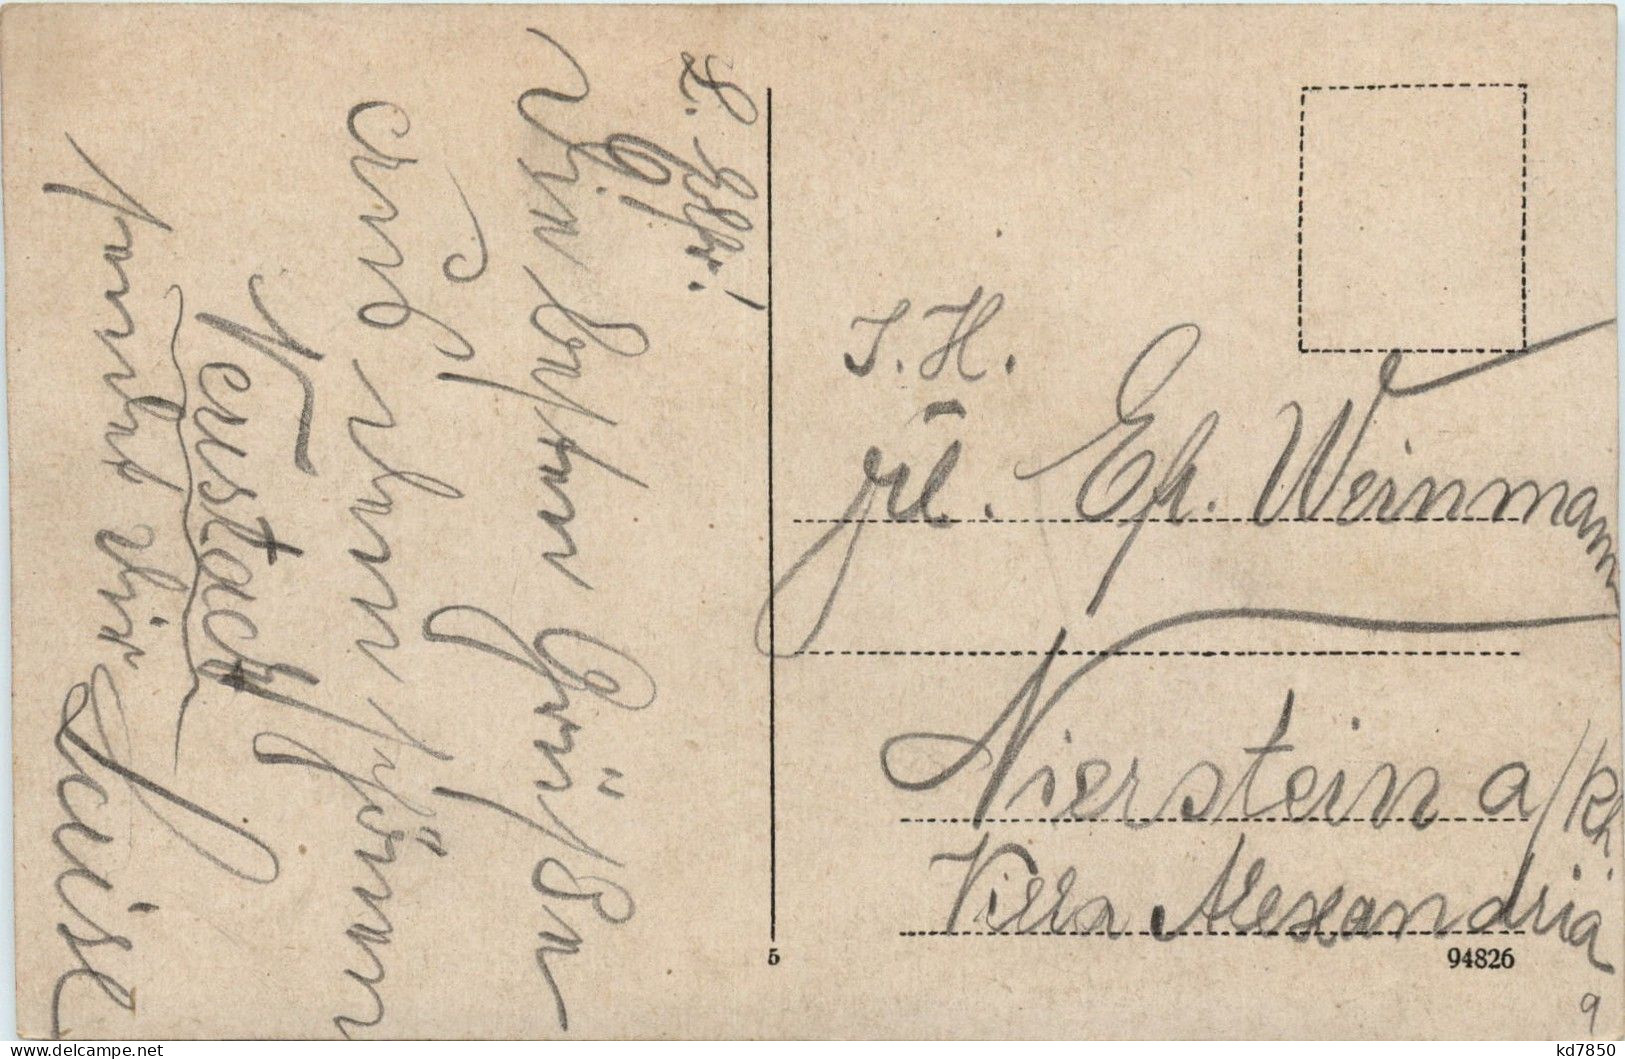 L. Eltr.!
Die besten Grüßen
aus dem schönen
Neustadt
sendet dir
Luise
J. H.
Frl. Ef. Weinmann
Nierstein a/Rh.
Villa Alexandria
5
94826
9
kd7850